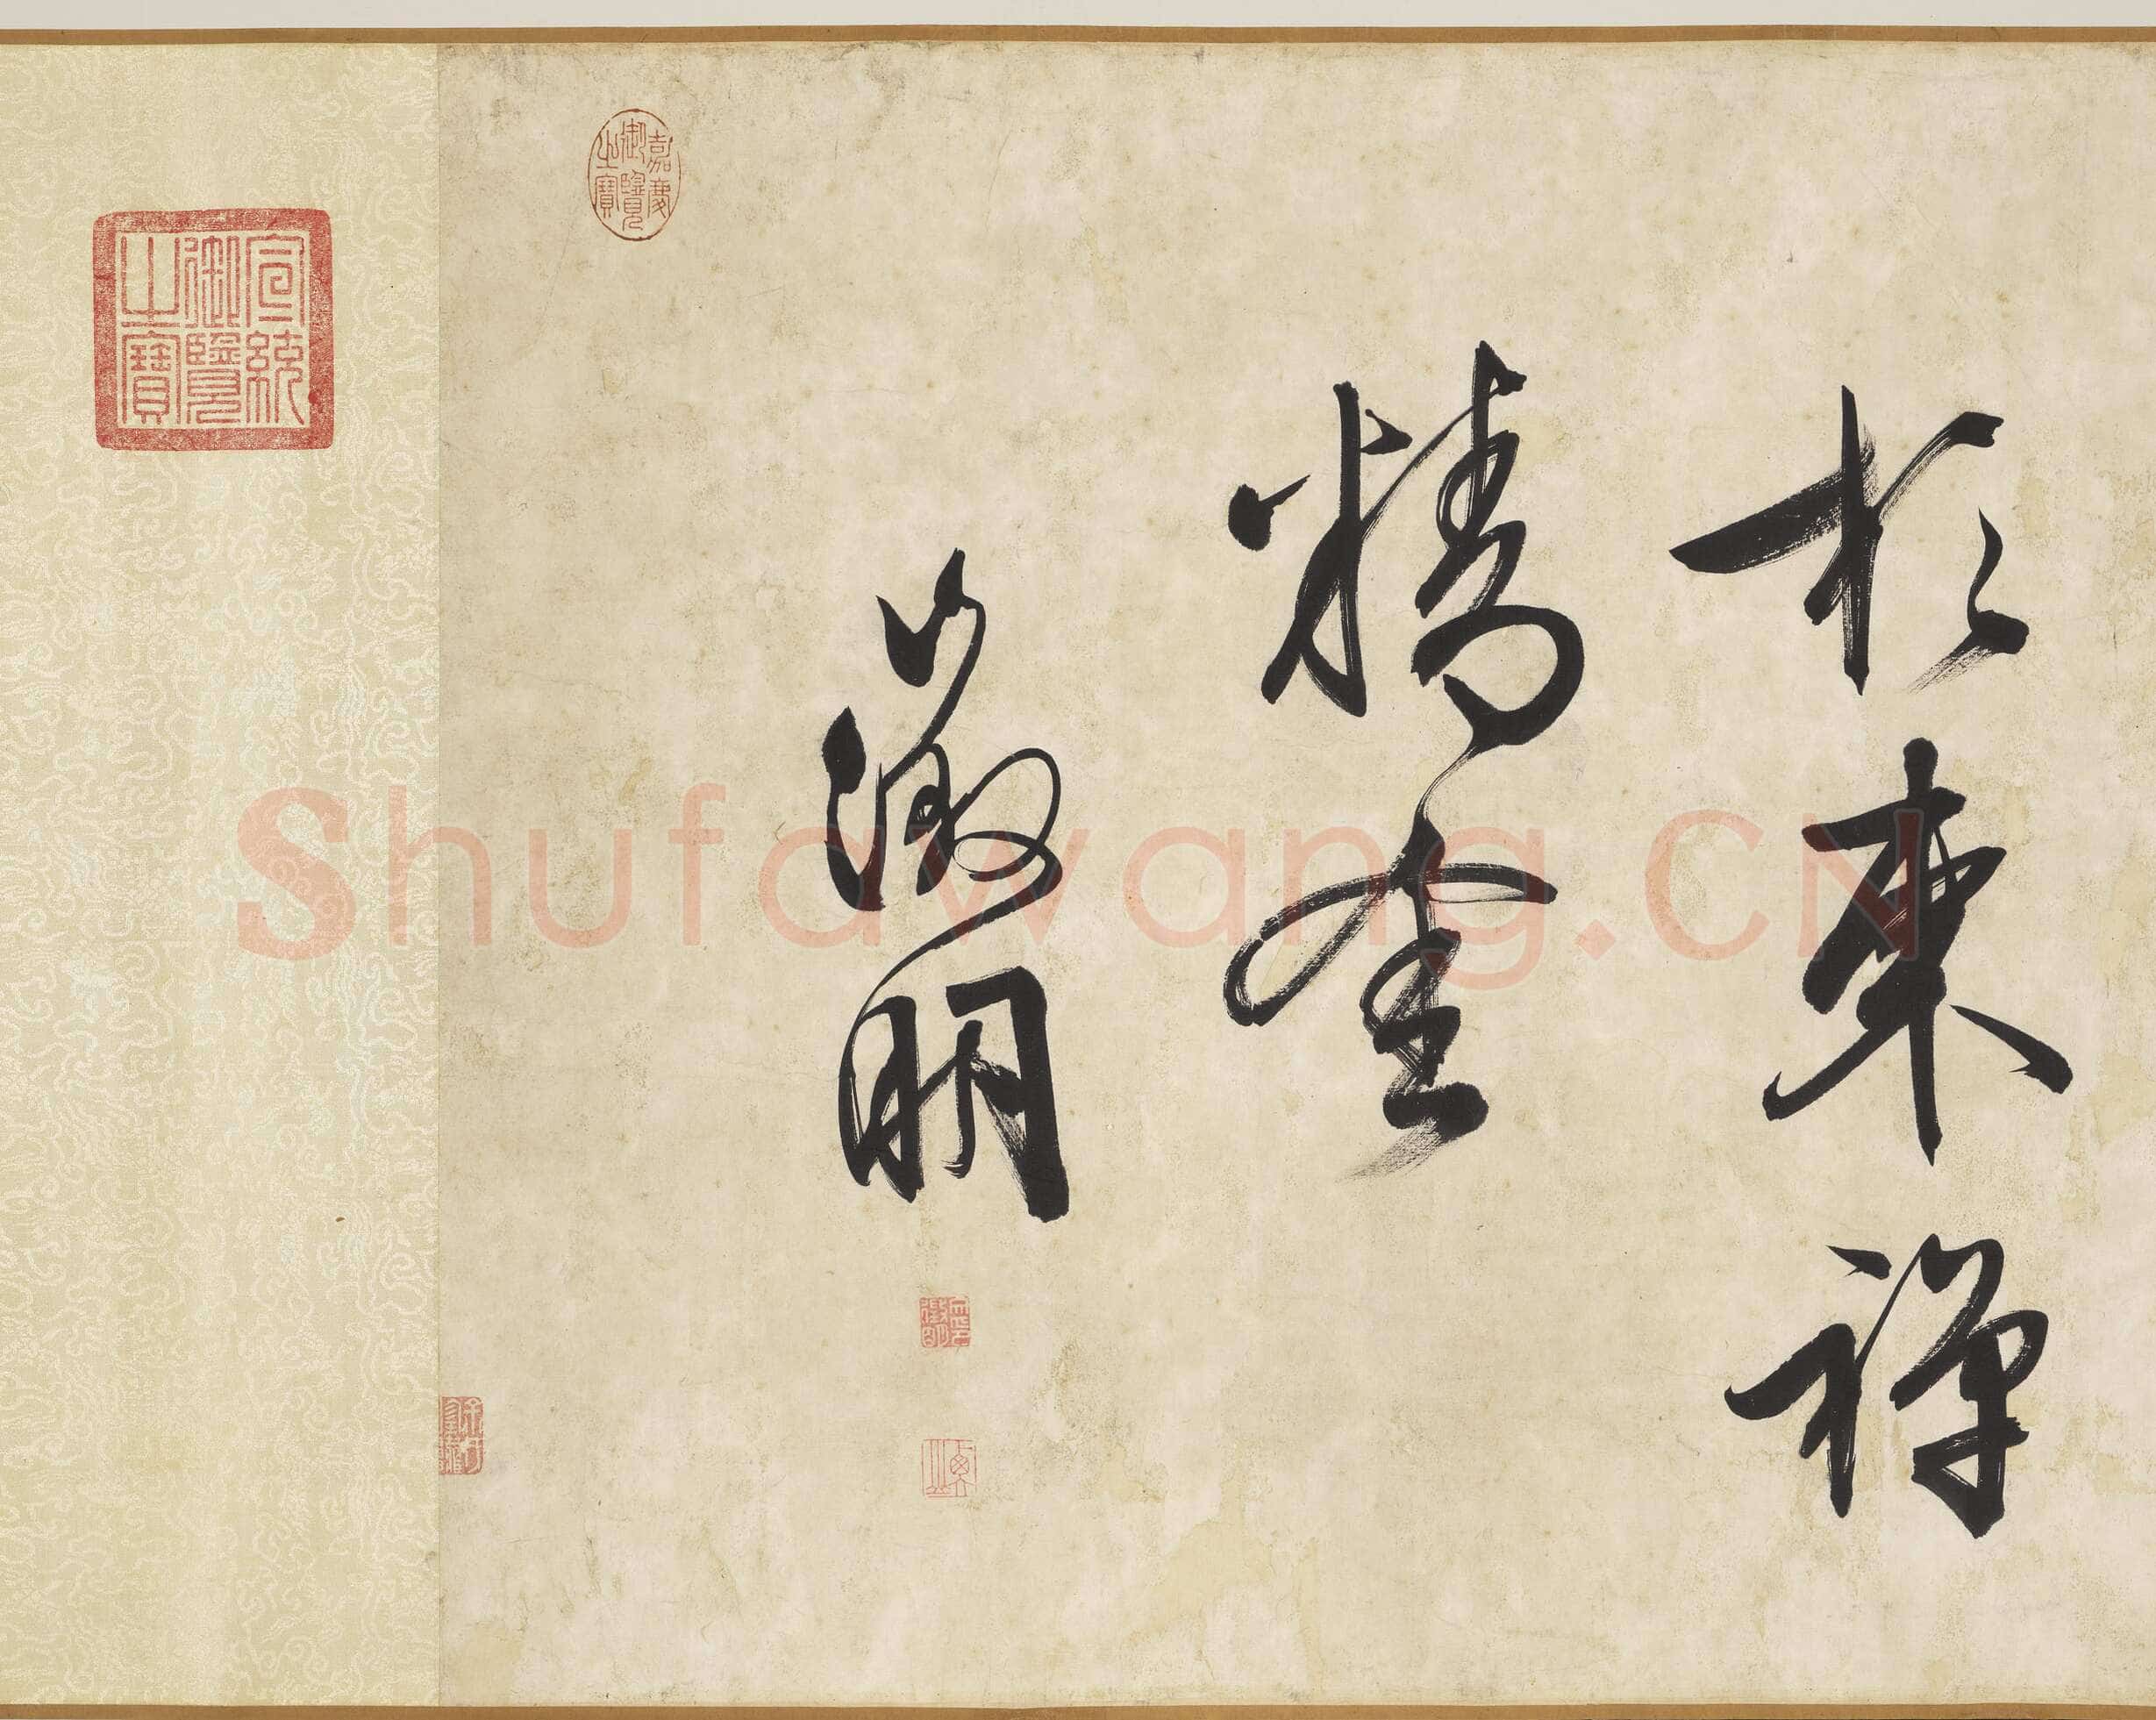 於東禪
精舍
徵明
嘉慶御覽之寶
宣統御覽之寶
Shufawang.CN